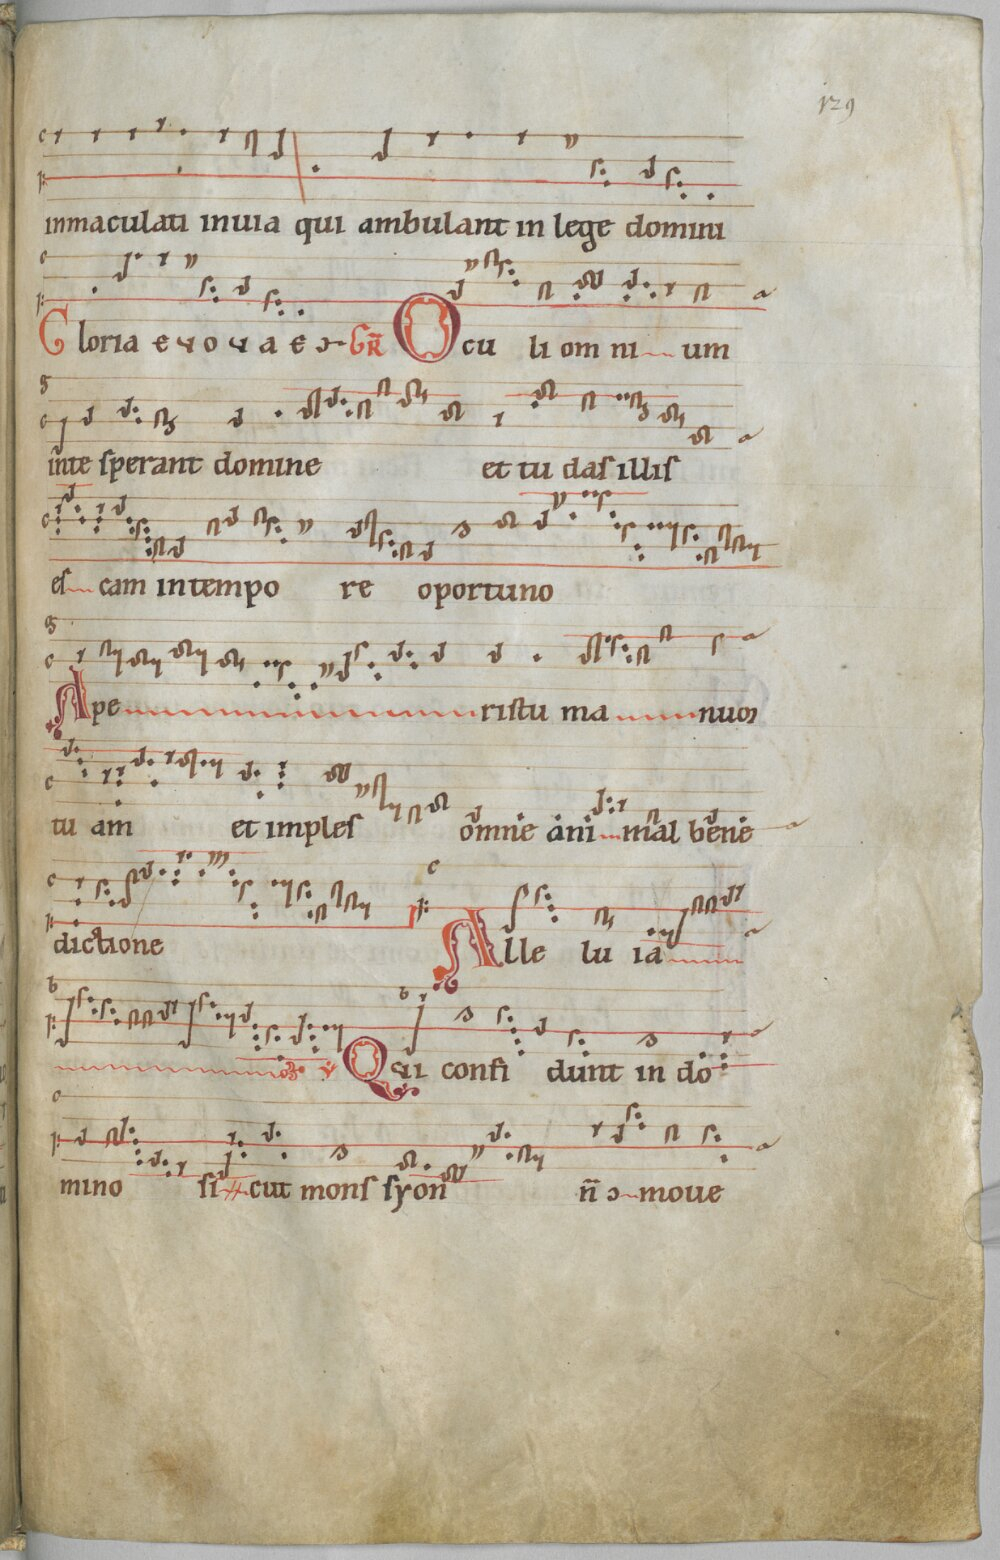 129
inmaculati inuia qui ambulant in lege domini
Gloria e u o u a e GR̄ Ocu li om ni um
in te sperant domine et tu das illis
es cam in tempo re oportuno
Ape ristu ma nuon
tu am et imples omne ani mal bene
dictione Alle lu ia
Qui confi dunt in do
mino si cut mons syon n̄ ɔ moue